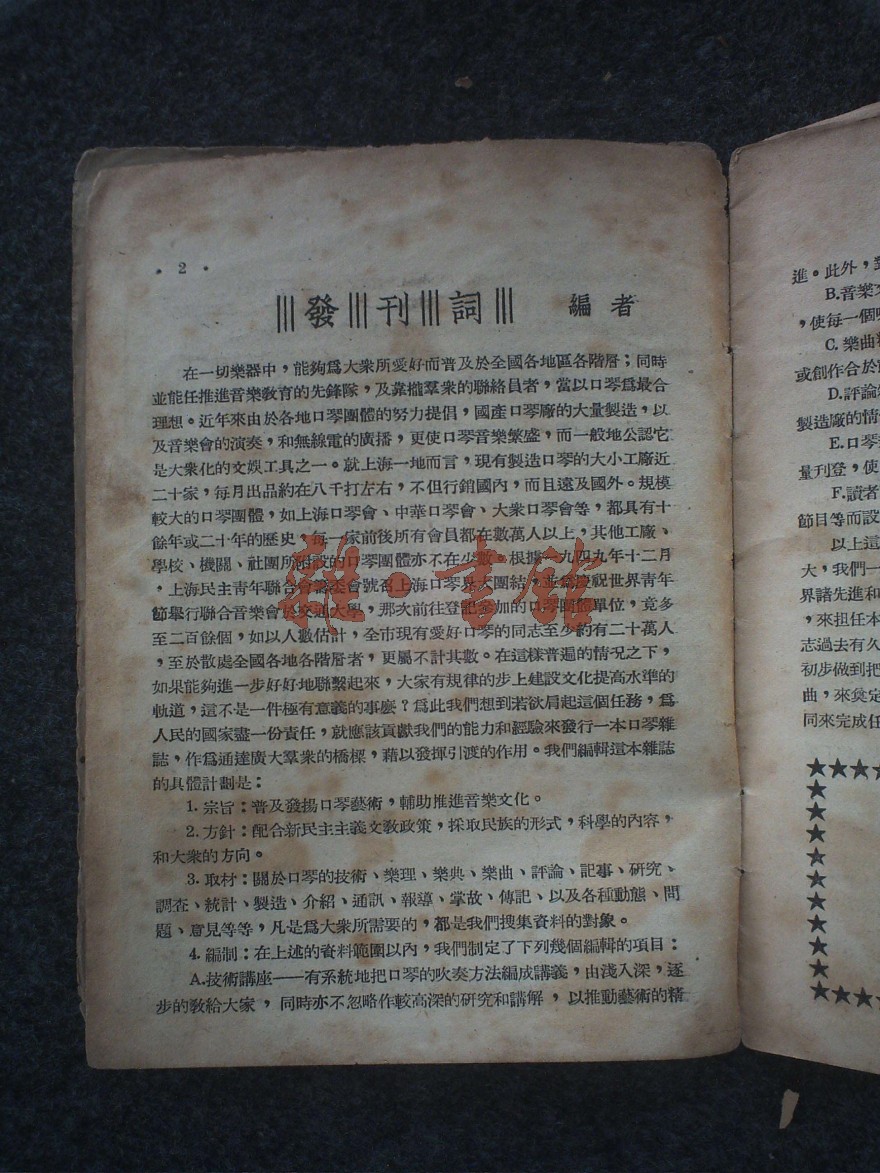 • 2 •
發刊詞 編者
在一切樂器中,能夠爲大衆所愛好而普及於全國各地區各階層;同時
並能任推進音樂敎育的先鋒隊,及靠攏羣衆的聯絡員者,當以口琴爲最合
理想。近年來由於各地口琴團體的努力提倡,國產口琴廠的大量製造,以
及音樂會的演奏,和無線電的廣播,更使口琴音樂繁盛,而一般地公認它
是大衆化的文娛工具之一。就上海一地而言,現有製造口琴的大小工廠近
二十家,每月出品約在八千打左右,不但行銷國內,而且遠及國外。規模
較大的口琴團體,如上海口琴會、中華口琴會、大衆口琴會等,都具有十
餘年或二十年的歷史,每一家前後所有會員都在數萬人以上,其他工廠、
學校、機關、社團所附設的口琴團體亦不在少數。根據一九四九年十二月
,上海民主靑年聯合會籌委會號召上海口琴界大團結,並爲慶祝世界靑年
節舉行聯合音樂會於交通大學,那次前往登記參加的口琴團體單位,竟多
至二百餘個,如以人數估計,全市現有愛好口琴的同志至少約有二十萬人
,至於散處全國各地各階層者,更屬不計其數。在這樣普遍的情況之下,
如果能夠進一步好好地聯繫起來,大家有規律的步上建設文化提高水準的
軌道,這不是一件極有意義的事麼?爲此我們想到若欲肩起這個任務,爲
人民的國家盡一份責任,就應該貢獻我們的能力和經驗來發行一本口琴雜
誌,作爲通達廣大羣衆的橋樑,藉以發揮引渡的作用。我們編輯這本雜誌
的具體計劃是:
1. 宗旨:普及發揚口琴藝術,輔助推進音樂文化。
2. 方針:配合新民主主義文敎政策,採取民族的形式,科學的內容,
和大衆的方向。
3. 取材:關於口琴的技術、樂理、樂典、樂曲、評論、記事、研究、
調查、統計、製造、介紹、通訊、報導、掌故、傳記、以及各種動態、問
題、意見等等,凡是爲大衆所需要的,都是我們搜集資料的對象。
4. 編制:在上述的資料範圍以內,我們制定了下列幾個編輯的項目:
A.技術講座——有系統地把口琴的吹奏方法編成講義,由淺入深,逐
步的敎給大家,同時亦不忽略作較高深的研究和講解,以推動藝術的精
雜·書館
進。此外,對
B.音樂文
,使每一個
C. 樂曲
或創作合於
D.評論
製造廠的情
E.口琴
量刊登,使
F.讀者
節目等而設
以上這
大,我們一
界諸先進和
,來担任本
志過去有久
初步做到把
曲,來奠定
同來完成任
★★★★
★
★
★
★
★
★
★
★
★
★★★★